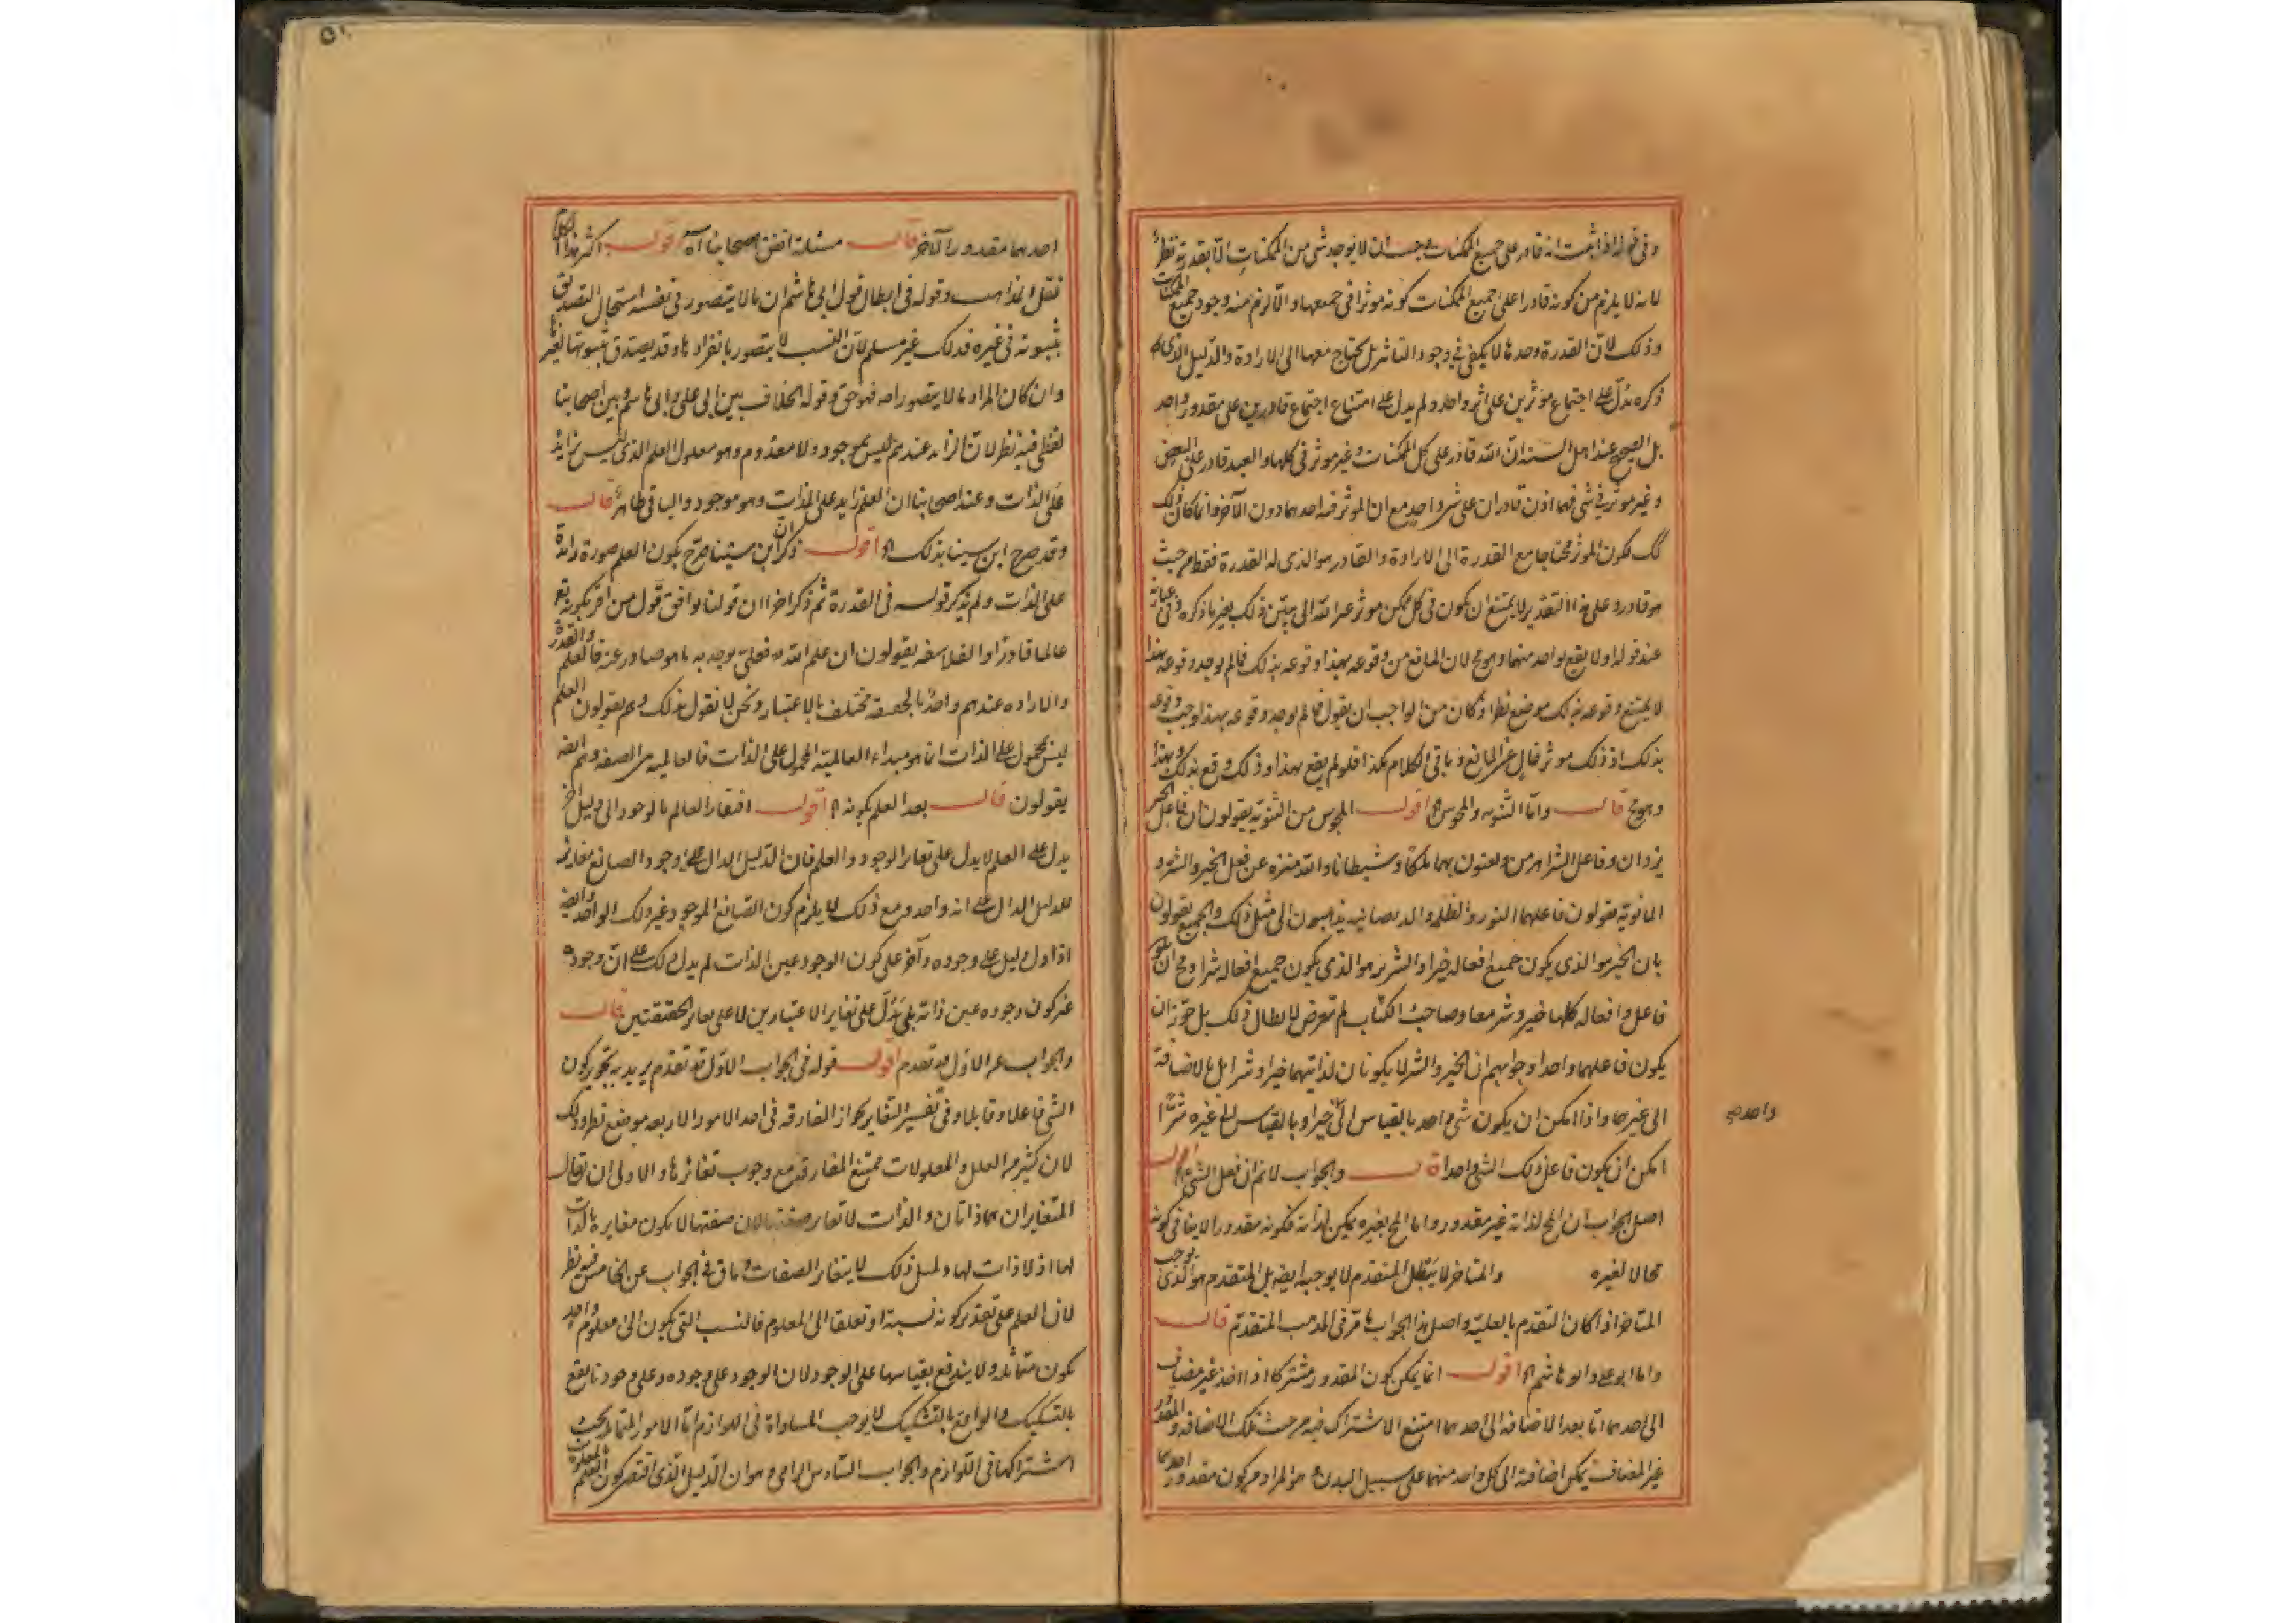 وفى قوله اذا ثبت انه قادر على جميع الممكنات وجب ان لا يوجد شى من الممكنات الا بقدرته نظر
لانه لا يلزم من كونه قادرا على جميع الممكنات كونه موثرا فى جميعها والا لزم منه وجود جميع الممكنات
وذلك لان القدرة وحدها لا يكفى فى وجود التاثير بل يحتاج معها الى الارادة والدليل الذى
ذكره يدل على اجتماع موثرين على اثر واحد ولم يدل على امتناع اجتماع قادرين على مقدور واحد
بل الصحيح عند اهل السنه ان الله قادر على كل الممكنات وغير موثر فى كلها والعبد قادر على البعض
وغير موثر فى شى فهما اذن قادران على شى واحد مع ان الموثر فيه احدهما دون الآخر وانما كان ذلك
كك لكون الموثر محتاجا مع القدرة الى الارادة والقادر هو الذى له القدرة فقط من حيث
هو قادر وعلى هذا التقدير لا يمتنع ان يكون فى كل ممكن موثر غير الله الى يبتين ذلك بغير ما ذكره وفى عبارته
عند قوله اولا يقع بواحد منهما وهو مح لان المانع من وقوعه بهذا وقوعه بذلك فما لم يوجد وقوعه بهذا
لا يمتنع وقوعه بذلك موضع نظر وكان من الواجب ان يقول فما لم يوجد وقوعه بهذا وجب وقوعه
بذلك اذ ذلك موثر خال عن المانع وباقى الكلام هكذا فلو لم يقع بهذا وذلك وقع بذلك وبهذا
وهو مح قال واما الثنويه والمجوس اه اقول المجوس من الثنويه يقولون ان فاعل الخير
يزدان وفاعل الشر اهرمن ويعنون بهما ملكا وشيطانا والله منزه عن فعل الخير والشر و
المانويه يقولون فاعلهما النور والظلمه والديصانيه يذهبون الى مثل ذلك والجميع يقولون
بان الخير هو الذى يكون جميع افعاله خيرا والشرير هو الذى يكون جميع افعاله شرا ومح ان يكون
فاعل وافعاله كلها خير وشر معا وصاحب الكتاب لم يتعرض لابطال ذلك بل جوز ان
يكون فاعلهما واحدا وجوابهم ان الخير والشر لا يكونان لذاتيهما خيرا وشرا بل بالاضافة
الى غيرها واذا امكن ان يكون شى واحد بالقياس الى خيرا وبالقياس الى غيره شرا
واحد
امكن ان يكون فاعل ذلك الشى واحدا قال والجواب لا نم ان فعل الشى اه اقول
اصل الجواب ان المح لذاته غير مقدور واما المح بغيره يمكن لذاته فكونه مقدورا لا ينافى كونه
محالا لغيره والمتاخر لا يبطل المتقدم لا يوجبه ايضه بل المتقدم هو الذى يوجب
المتاخر اذا كان التقدم بالعليه واصل هذا الجواب ما مر فى المذهب المتقدم قال
واما ابو على وابو هاشم اه اقول انما يمكن كون المقدور مشتركا اذا اخذ غير مضاف
الى احدهما اما بعد الاضافه الى احدهما امتنع الاشتراك فيه من حيث تلك الاضافه والمقدور
غير المضاف يمكن اضافته الى كل واحد منهما على سبيل البدل وهو المراد من كون مقدور احدهما
٥٠
احدهما مقدورا لآخر قال مسئلة اتفق اصحابنا اه اقول اكثر هذا الكلام
نقل المذاهب وقوله فى ابطال قول ابى هاشم ان ما لا يتصور فى نفسه استحال التصديق
بثبوته فى غيره فذلك غير مسلم لان النسب لا يتصور بانفرادها وقد يصدق بثبوتها لغيرها
وان كان المراد ما لا يتصور اصه فهو حق وقوله الخلاف بين ابى على وابى هاشم وبين اصحابنا
لفظى فيه نظر لان الزائد عندهم ليس بموجود ولا معدوم وهو معلول العلم الذى ليس بزايد
على الذات وعند اصحابنا ان العلم زايد على الذات وهو موجود والباقى ظاهر قال
وقد صرح ابن سينا بذلك اه اقول ذكر ان ابن سينا صرح بكون العلم صورة زائدة
على الذات ولم يذكر قوله فى القدرة ثم ذكر اخرا ان قولنا يوافق قول من اقر بكونه تع
عالما قادرا والفلاسفه يقولون ان علم الله فعلى يوجد به ما هو صادر عنه فالعلم والقدرة
والاراده عندهم واحد بالحقيقه مختلف بالاعتبار ونحن لا نقول بذلك وهم يقولون العلم
ليس بمحمول على الذات انما هو مبداء العالمية المحمول على الذات فالعالميه هى الصفه وهم ايضه
يقولون قال بعد العلم بكونه اه اقول افتقار العالم بالوجود الى دليل آخر
يدل على العلم لا يدل على تغاير الوجود والعلم فان الدليل الدال على وجود الصانع مغاير
للدليل الدال على انه واحد ومع ذلك لا يلزم كون الصانع الموجود غير ذلك الواحد وايضه
اذا دل دليل على وجوده وآخر على كون الوجود عين الذات لم يدل ذلك على ان وجوده
غير كون وجوده عين ذاته بلى يدل على تغاير الاعتبارين لا على تغاير الحقيقتين قال
والجواب عن الاول قد تقدم اقول قوله فى الجواب الاول قد تقدم يريد به تجويز كون
الشى فاعلا وقابلا وفى تفسير التغاير بجواز المفارقه فى احد الامور الاربعه موضع نظر وذلك
لان كثيرا من العلل والمعلولات ممتنع المفارقه مع وجوب تغايرها والاولى ان يقال
المتغايران هما ذاتان والذات لا تغاير صفتها لان صفتها لا يكون مغايرة بالذات
لها اذ لا ذات لها ولمثل ذلك لا يتغاير الصفات وباقى فى الجواب عن الخامس فيه نظر
لان العلم على تقدير كونه نسبة او تعلقا الى المعلوم فالنسب التى يكون الى معلوم واحد
يكون متماثله ولا يندفع بقياسها على الوجود لان الوجود على وجوده وعلى وجودنا يقع
بالتشكيك والواقع بالتشكيك لا يوجب المساواة فى اللوازم اما الامور المتماثله يجب
اشتراكها فى اللوازم والجواب السادس الزامى وهو ان الدليل الذى اقتضى كون العلم